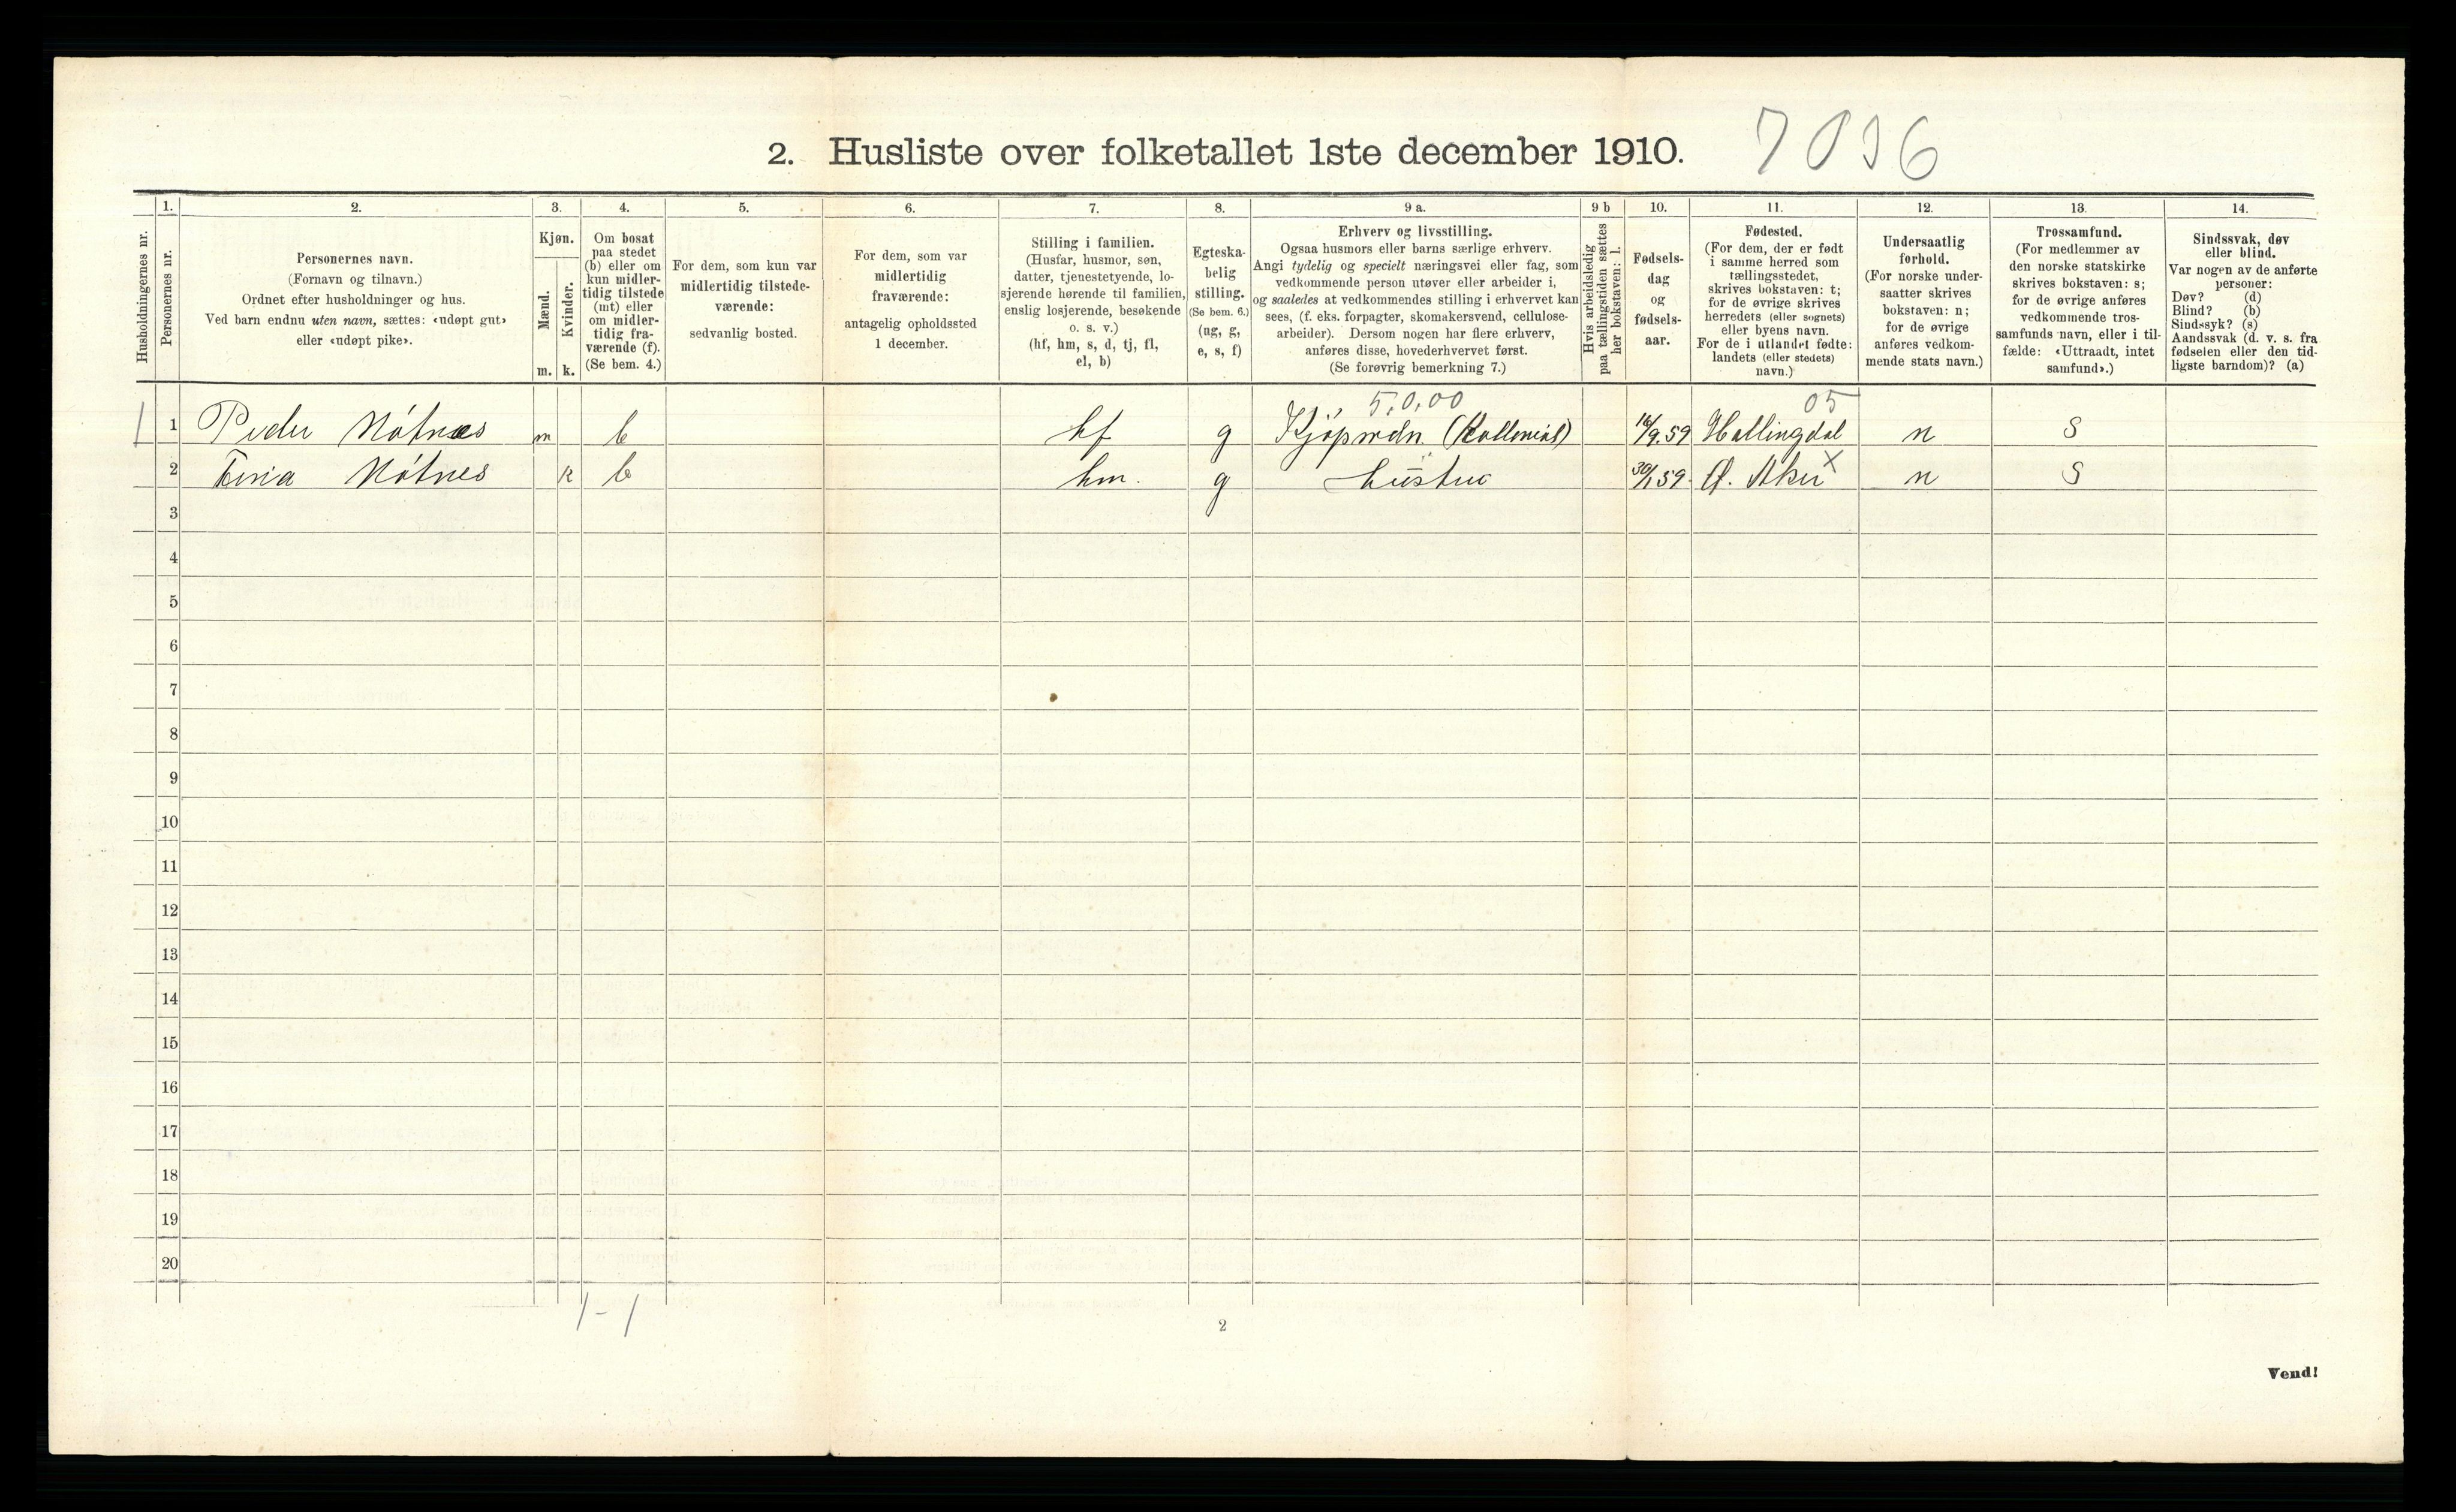 2. Husliste over folketallet 1ste december 1910.
1. 2. 3. 4. 5. 6. 7. 8. 9 a. 9 b 10. 11. 12. 13. 14.
Husholdningernes nr.
Personernes nr.
Personernes navn.
(Fornavn og tilnavn.)
Ordnet efter husholdninger og hus.
Ved barn endnu uten navn, sættes: «udøpt gut»
eller «udøpt pike».
Kjøn.
Mænd.
Kvinder.
m. k.
Om bosat
paa stedet
(b) eller om
kun midler-
tidig tilstede
(mt) eller
om midler-
tidig fra-
værende (f).
(Se bem. 4.)
For dem, som kun var
midlertidig tilstede-
værende:
sedvanlig bosted.
For dem, som var
midlertidig
fraværende:
antagelig opholdssted
1 december.
Stilling i familien.
(Husfar, husmor, søn,
datter, tjenestetyende, lo-
sjerende hørende til familien,
enslig losjerende, besøkende
o. s. v.)
(hf, hm, s, d, tj, fl,
el, b)
Egteska-
belig
stilling.
(Se bem. 6.)
(ug, g,
e, s, f)
Erhverv og livsstilling.
Ogsaa husmors eller barns særlige erhverv.
Angi tydelig og specielt næringsvei eller fag, som
vedkommende person utøver eller arbeider i,
og saaledes at vedkommendes stilling i erhvervet kan
sees, (f. eks. forpagter, skomakersvend, cellulose-
arbeider). Dersom nogen har flere erhverv,
anføres disse, hovederhvervet først.
(Se forøvrig bemerkning 7.)
Hvis arbeidsledig
paa tællingstiden sættes
her bokstaven: l.
Fødsels-
dag
og
fødsels-
aar.
Fødested.
(For dem, der er født
i samme herred som
tællingsstedet,
skrives bokstaven: t;
for de øvrige skrives
herredets (eller sognets)
eller byens navn.
For de i utlandet fødte:
landets (eller stedets)
navn.)
Undersaatlig
forhold.
(For norske under-
saatter skrives
bokstaven: n;
for de øvrige
anføres vedkom-
mende stats navn.)
Trossamfund.
(For medlemmer av
den norske statskirke
skrives bokstaven: s;
for de øvrige anføres
vedkommende tros-
samfunds navn, eller i til-
fælde: «Uttraadt, intet
samfund».)
Sindssvak, døv
eller blind.
Var nogen av de anførte
personer:
Døv? (d)
Blind? (b)
Sindssyk? (s)
Aandssvak (d. v. s. fra
fødselen eller den tid-
ligste barndom)? (a)
5,0,00 05
1 1 Peder Nótnes m b hf g Kjøpmdn (Kollonial) 16/9.59 Hallingdal n S
2 Nótnes k b hm. g hustru 30/1 59 Ø. Aker X n S
3
4
5
6
7
8
9
10
11
12
13
14
15
16
17
18
19
20
1-1
2
Vend!